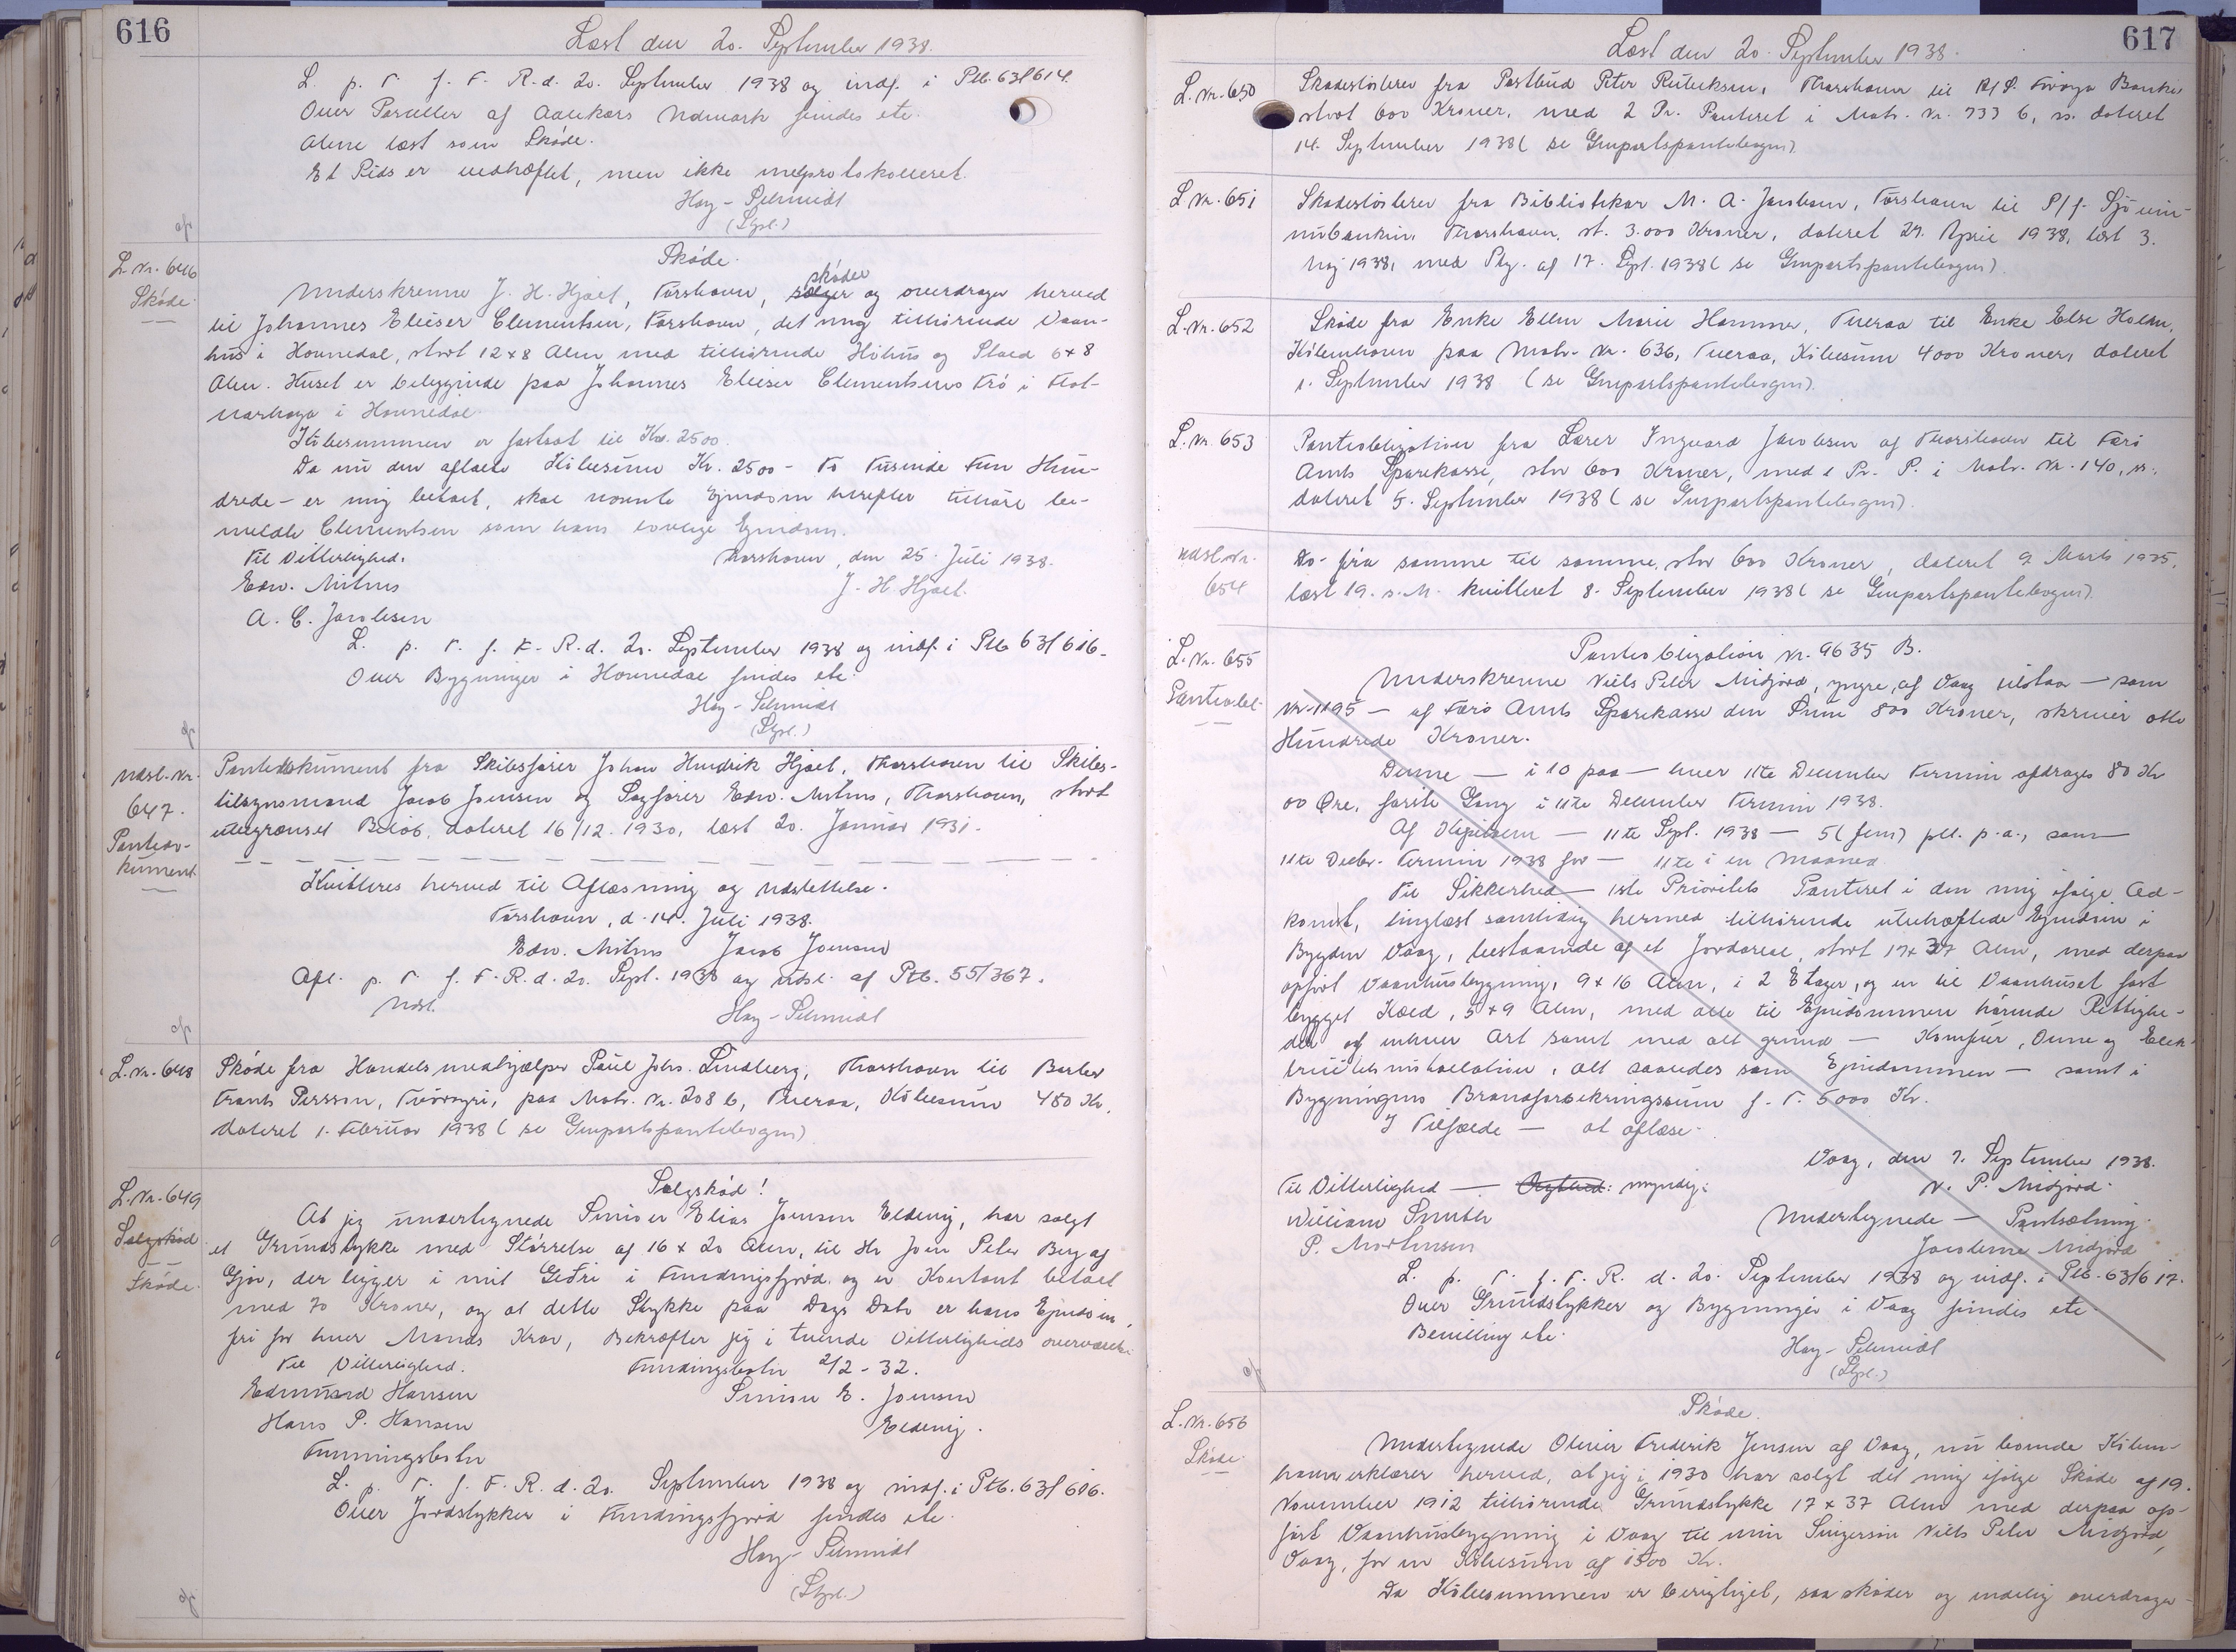 616
Læst den 20. September 1938.
L. p. T. f. F. R. d. 20. September 1938 og indf. i Ptb. 63/614.
Over Parceller af Aalekærs Udmark findes etc.
Alene læst som Skøde.
Et Rids er vedhæftet, men ikke medprotokolleret.
Høy-Schmidt
(Stpl.)
L. Nr. 646
Skøde.
Skøde.
Underskrevne J. H. Hjalt, Tórshavn, sælger skøder og overdrager herved
til Johannes Elieser Clementsen, Tórshavn, det mig tilhørende Vaan-
hus i Hounedal, stort 12 x 8 Alen med tilhørende Höhus og Stald 6 x 8
Alen. Huset er beliggende paa Johannes Elieser Clementsens Trö i
i Hounedal.
Köbesummen er fastsat til Kr. 2500.
Da nu den aftalte Köbesum Kr. 2500 - To Tusinde Fem Hun-
drede - er mig betalt, skal nævnte Ejendom herefter tilhøre be-
meldte Clementsen som hans lovlige Ejendom.
Til Vitterlighed.
Thorshavn, den 25. Juli 1938.
Edw. Mitens
J. H. Hjalt.
A. C. Jacobsen
L. p. T. f. F. R. d. 20. September 1938 og indf. i Ptb 63/616.
Over Bygninger i Hounedal findes etc.
Høy-Schmidt
(Stpl.)
Udsl. Nr.
647.
Pantedo-
kument
Pantedokument fra Skibsfører Johan Hendrik Hjalt, Thorshavn til Skibs-
tilsynsmand Jacob Joensen og Sagfører Edw. Mitens, Thorshavn, stort
ubegrænset Beløb, dateret 16/12. 1930, læst 20. Januar 1931.
Kvitteres herved til Aflæsning og Udslettelse.
Tórshavn, d. 14. Juli 1938.
Edw. Mitens Jacob Joensen
Afl. p. T. f. F. R. d. 20. Sept. 1938 og udsl. af Ptb. 55/367.
Udsl.
Høy-Schmidt
L. Nr. 648
Skøde fra Handelsmedhjælper Paul Johs. Lindberg, Thorshavn til Barber
Frants Persson, Tvøroyri, paa Matr. Nr. 208 b, Tveraa, Köbesum 480 Kr,
dateret 1. Februar 1938 (se Genpartspantebogen)
L. Nr. 649
Salgskød
Skøde.
Salgskød!
At jeg undertegnede Simon Elias Joensen Eldevig, har solgt
et Grundstykke med Størrelse af 16 x 20 Alen, til Hr Joen Peter Berg af
Gjov, der ligger i mit i Fundingsfjord og er Kontant betalt
med 70 Kroner, og at dette Stykke paa Dags Dato er hans Ejendom,
fri for hver Mands Krav, Bekræfter jeg i tvende Vitterligheds overværelse
Til Vitterlighed.
Fundingsbotn 2/2 - 32.
Edmund Hansen
Simon E. Joensen
Hans P. Hansen
Eldevig.
Funningsbotn
L. p. T. f. F. R. d. 20. September 1938 og indf. i Ptb. 63/616.
Over Jordstykker i Fundingsfjord findes etc.
Høy-Schmidt
(Stpl.)
617
Læst den 20. September 1938.
L. Nr. 650
Skadesløsbrev fra Postbud Peter Ruteksen, Thorshavn til A/S. Föroya Banki,
stort 600 Kroner, med 2 Pr. Panteret i Matr. Nr. 733 b, ss. dateret
14. September 1938 (se Genpartspantebogen).
L. Nr. 651
Skadesløsbrev fra Bibliotekar M. A. Jacobsen, Tórshavn til P/f. Sjóvin-
nubankin, Thorshavn, st. 3.000 Kroner, dateret 29. April 1938, læst 3.
Maj 1938, med Ptg. af 17. Sept. 1938 (se Genpartspantebogen).
L. Nr. 652
Skøde fra Enke Ellen Marie Hammer, Tveraa til Enke Else Holm,
Köbenhavn paa Matr. Nr. 636, Tveraa, Köbesum 4000 Kroner, dateret
1. September 1938 (se Genpartspantebogen).
L. Nr. 653
Panteobligation fra Lærer Ingvard Jacobsen af Thorshavn til Færø
Amts Sparekasse, stor 600 Kroner, med 1 Pr. P. i Matr. Nr. 140, ss.
dateret 5. September 1938 (se Genpartspantebogen).
Udsl. Nr.
654
Do. fra samme til samme, stor 600 Kroner, dateret 9 Marts 1935,
læst 19. s. M. kvitteret 8. September 1938 (se Genpartspantebogen).
L. Nr. 655
Panteobl.
Panteobligation Nr. 9635 B.
Underskrevne Niels Peter Midjord, yngre, af Vaag tilstaar — som
Nr. 1195 — af Færø Amts Sparekasse den Sum 800 Kroner, skriver otte
Hundrede Kroner.
Denne — i 10 paa — hver 11te December Termin afdrages 80 Kr
00 Øre, første Gang i 11te December Termin 1938.
Af Kapitalen — 11te Sept. 1938 — 5 (fem) pCt. p. a., som —
11te Decbr. Termin 1938 for — 11te i en Maaned.
Til Sikkerhed — 1ste Prioritets Panteret i den mig ifølge Ad-
komst, tinglæst samtidig hermed tilhørende ubehæftede Ejendom i
Bygden Vaag, bestaaende af et Jordareal, stort 17 x 37 Alen, med derpaa
opført Vaanhusbygning, 9 x 16 Alen, i 2 Etager, og en til Vaanhuset fast
bygget Kæld, 5 x 9 Alen, med alle til Ejendommen hørende Rettighe-
der af enhver Art samt med alt grund — Komfur, Ovne og Elek-
tricitetsinstallation, alt saavdes som Ejendommen — samt i
Bygningens Brandforsikringssum f. T. 5000 Kr.
I Tilfælde — at aflæse.
Vaag, den 7. September 1938.
Til Vitterlighed — myndig:
N. P. Midjord.
William Smith
Undertegnede — Pantsætning.
P. Mortensen
Jacobine Midjord
L. p. T. f. F. R. d. 20. September 1938 og indf. i Ptb. 63/617.
Over Grundstykker og Bygninger i Vaag findes etc.
Bevilling etc.
Høy-Schmidt
(Stpl.)
L. Nr. 656
Skøde.
Skøde.
Undertegnede Oliver Frederik Jensen af Vaag, nu boende Köben-
havn erklærer herved, at jeg i 1930 har solgt det mig ifølge Skøde af 19.
November 1912 tilhørende Grundstykke 17 x 37 Alen med derpaa op-
ført Vaanhusbygning i Vaag til min Svigersön Niels Peter Midjord,
Vaag, for en Köbesum af 1500 Kr.
Da Köbesummen er berigtiget, saa skøder og endelig overdrager